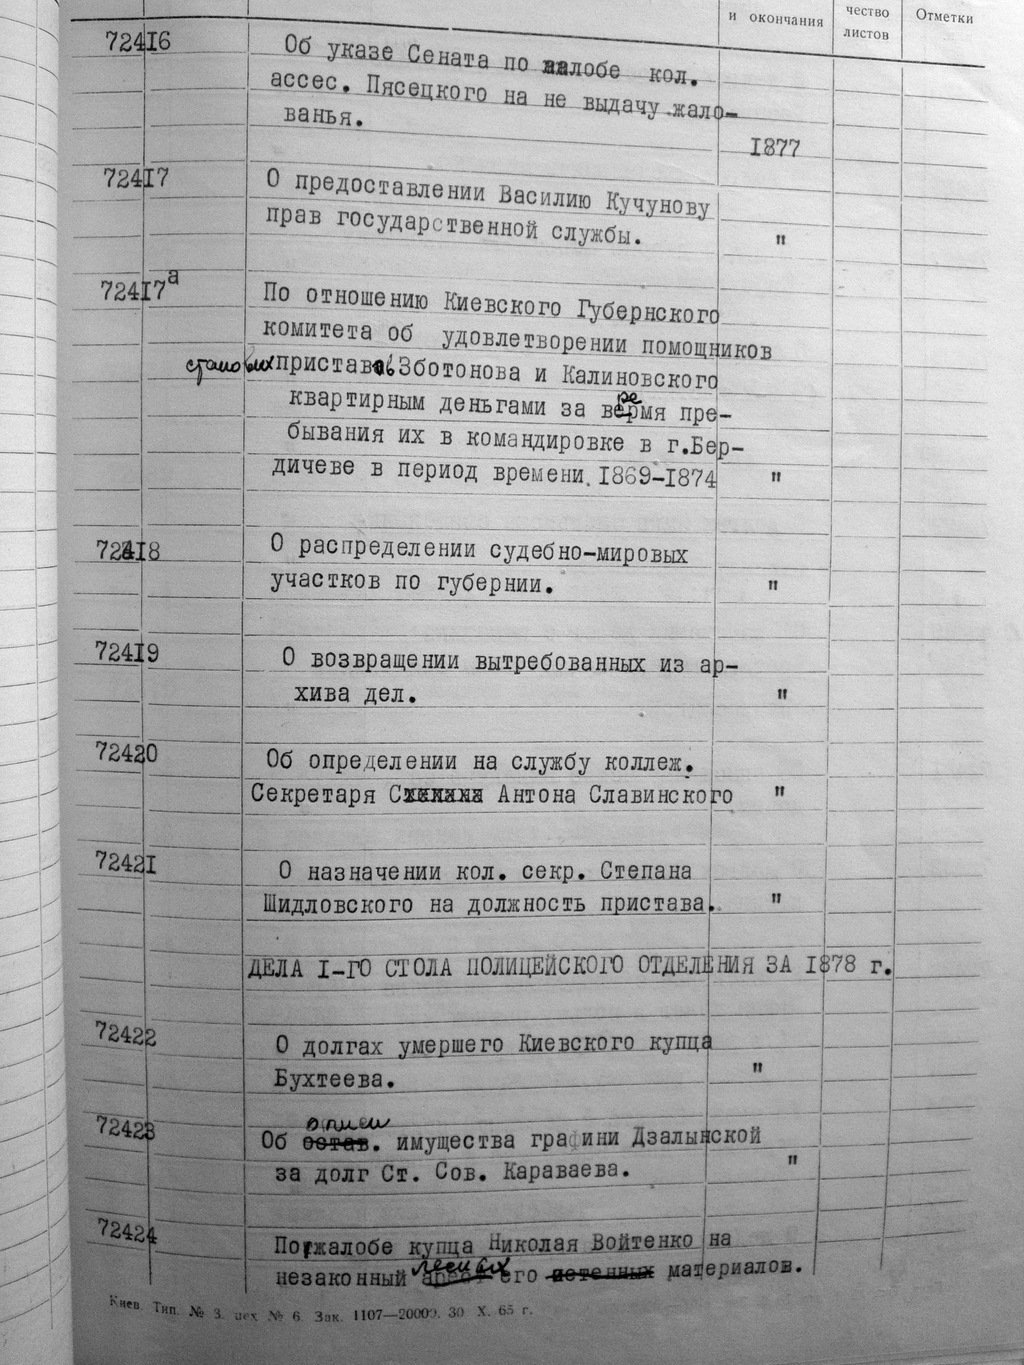 и окончания
чество
листов
Отметки
72416
Об указе Сената по жалобе кол.
ассес. Пясецкого на не выдачу жало-
ванья.
1877
72417
О предоставлении Василию Кучунову
прав государственной службы.
"
72417а
По отношению Киевского Губернского
комитета об удовлетворении помощников
становых приставов Зботонова и Калиновского
квартирным деньгами за время пре-
бывания их в командировке в г.Бер-
дичеве в период времени 1869-1874
"
72418
О распределении судебно-мировых
участков по губернии.
"
72419
О возвращении вытребованных из ар-
хива дел.
"
72420
Об определении на службу коллеж.
Секретаря Антона Славинского
"
72421
О назначении кол. секр. Степана
Шидловского на должность пристава.
"
ДЕЛА I-ГО СТОЛА ПОЛИЦЕЙСКОГО ОТДЕЛЕНИЯ ЗА 1878 г.
72422
О долгах умершего Киевского купца
Бухтеева.
"
72423
Об описи имущества графини Дзалынской
за долг Ст. Сов. Караваева.
"
72424
По жалобе купца Николая Войтенко на
незаконный арест его лесных материалов.
Киев. Тип. № 3. цех № 6 Зак. 1107—20000. 30 X. 65 г.